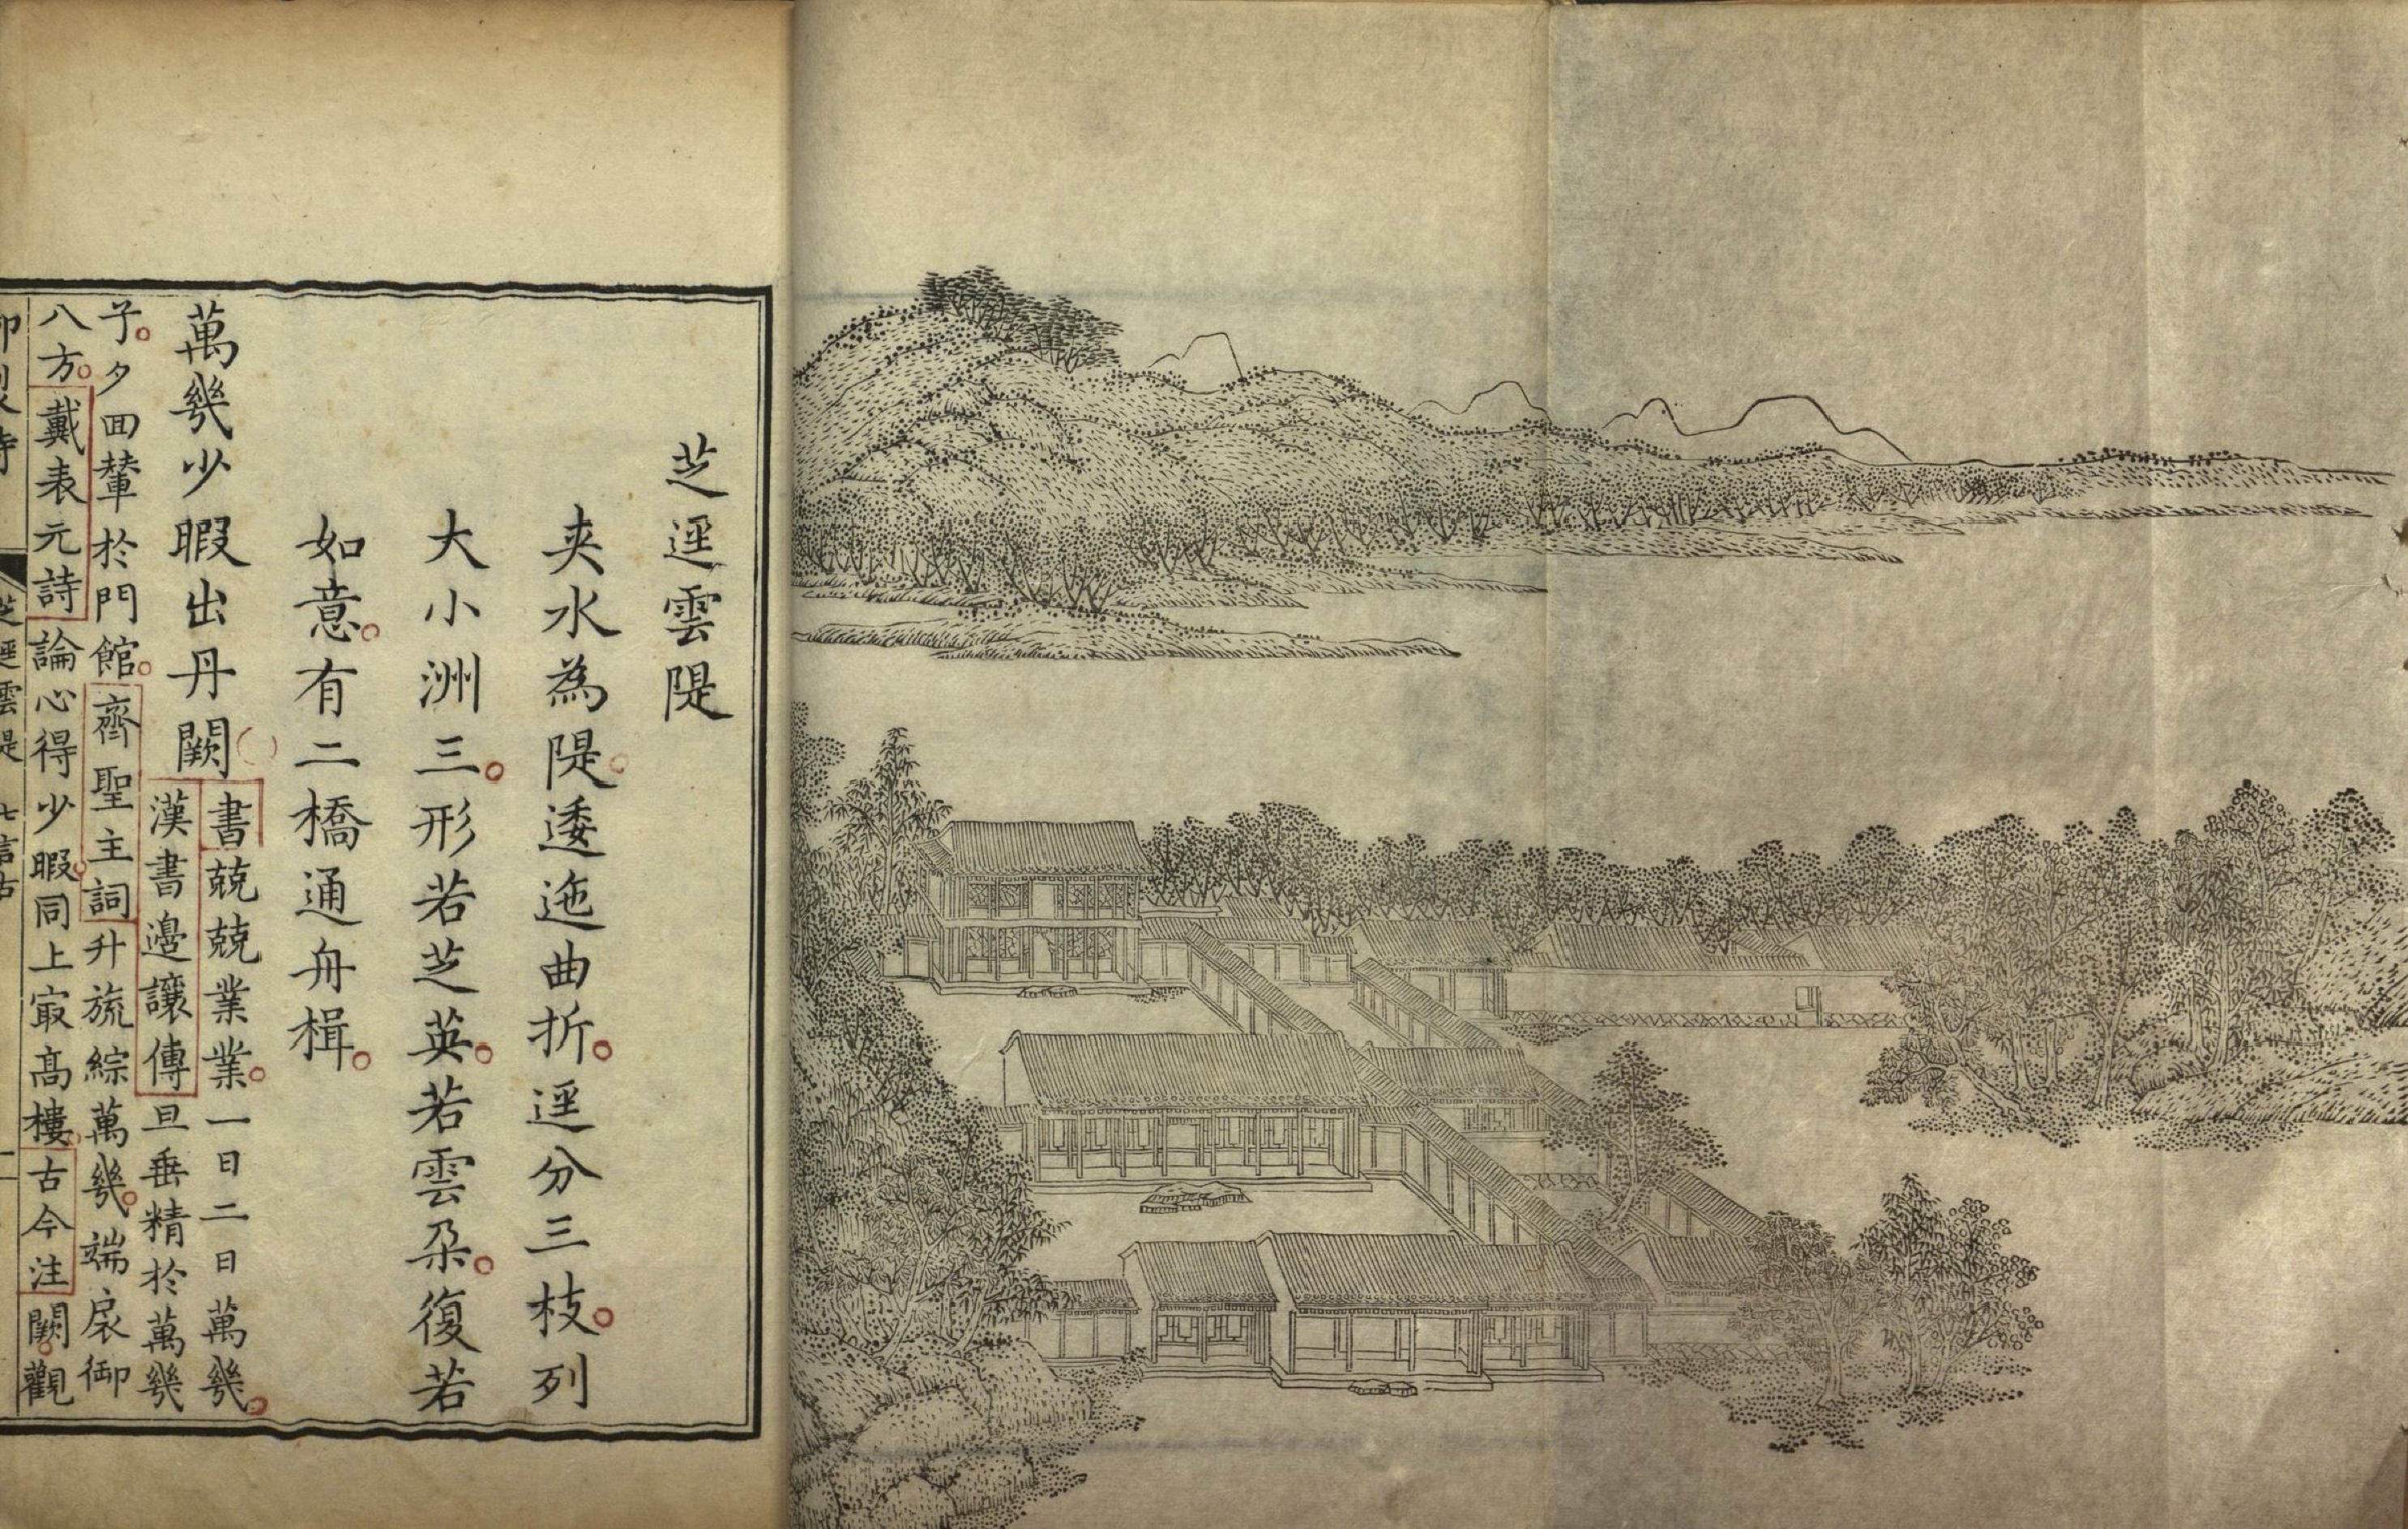 芝逕雲隄
夾水為隄逶迤曲折逕分三枝列
大小洲三形若芝英若雲朶復若
如意有二橋通舟楫
萬幾少暇出丹闕
書兢兢業業一日二日萬幾
漢書邊讓傳旦垂精於萬幾
子夕囬輦於門館齊聖主詞升旒綜萬幾端扆御
八方戴表元詩論心得少暇同上㝡髙樓古今注闕觀
芝逕雲隄